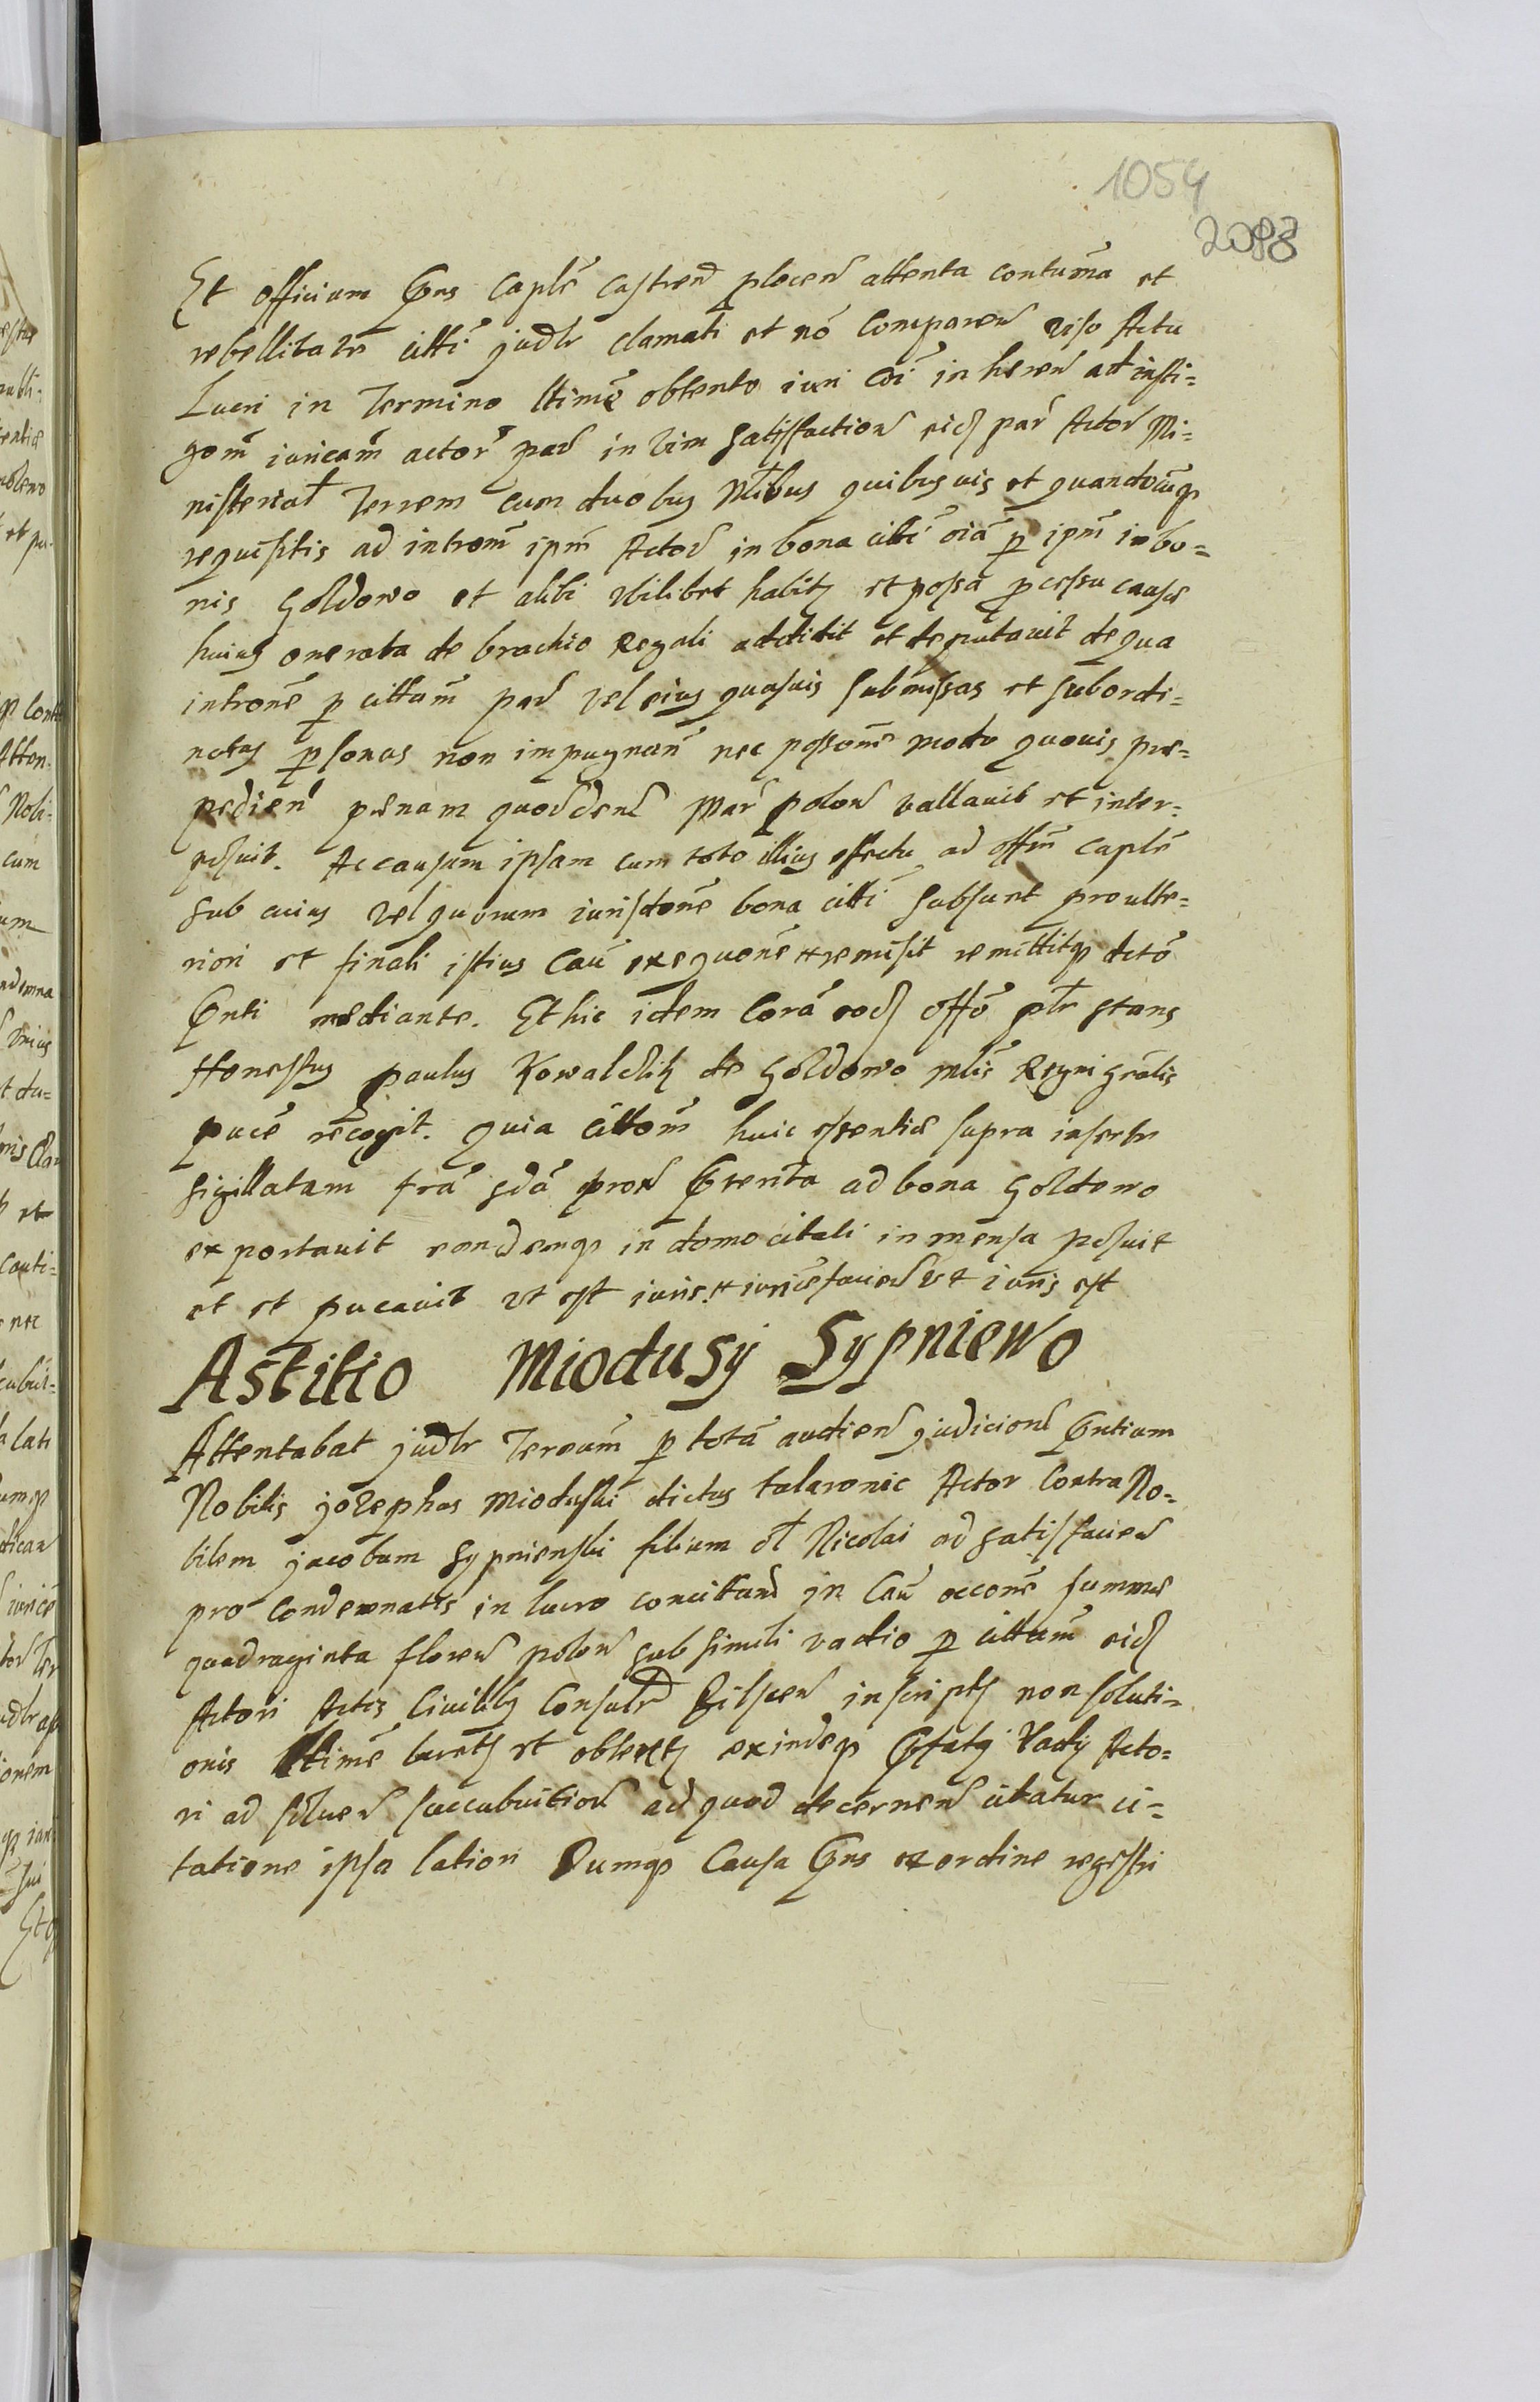 1054
2083
Et officium Gns Caplē castren plocen attenta contuma et
rebellitate citti judr clamati et nō Comparen viso Actu
Lucri in Termino ltime obtento iuri cōi in heren ad insti=
gom iuricam actor par in vim satisfaction eid par Actor Mi=
nisterial Terrem cum duobus Nlibus quibusuis et quandocūqз
requisitis ad introm ipm Actor in bona citti oiā p ipm in bo=
nis Goldowo et alibi vbilibet habita et possa pcessu causæ
huius onerata de brachio Regali addidit et deputauit de qua
intronē p cittam par vel eius quasuis submissas et subordi=
natas psonas non impugnan nec possonē modo quouis præ=
pedien pænam quordenl Mar polon vallauit et inter=
posuit. Ac causam ipsam cum toto illius effectu ad offm caplē
sub cuius vel quorum iurisdonē bona citti subsunt pro ulte=
riori et finali istius Cau exequonē remisit remittitqз Actō
Gnti mediante. Et hic idem Corā eod offō ptr stans
Honestus paulus Kowalchik de Goldowo Mlis Regni gralis
puce recogit. quia cittom huic sentiæ supra insertæ
sigillatam frā gdā prox Gterita ad bona Goldowo
exportauit eandemqз in domo citati in mensa posuit
et et pucauit vt est iuris et iuricefacien vt iuris est
Astitio Miodusy Sypniewo
Attentabat judr Termm p totā audien judicionl Gntium
Nobilis jozephus Mioduski dictus talaronic Actor Contra No=
bilem jacobum Sypnienski filium ol Nicolai ad satisfacien
pro Condemnatis in lucro concittand in Cau occonē summæ
quadraginta floren polon sub simili vadio p cittum eid
Actori Actis Ciuilibus Consulr Bilscen inscriptæ non soluti=
onis ltimē lucratæ et obtentæ exindeqз Gfatij Vadij Acto=
ri ad soluen succubuition ad quod decernen citatur ci=
tatione ipsa latiori Dumqз Causa Gns ex ordine registri